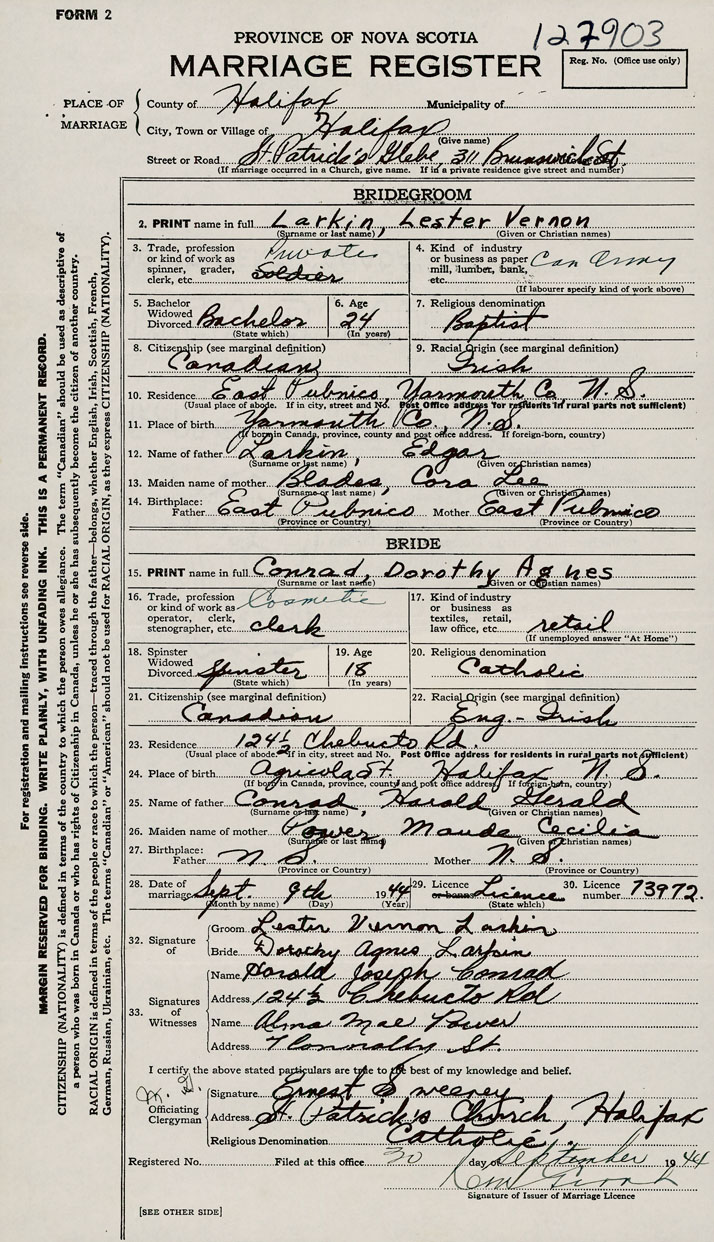 FORM 2
127903
PROVINCE OF NOVA SCOTIA
MARRIAGE REGISTER
Reg. No. (Office use only)
PLACE OF MARRIAGE
County of Halifax Municipality of
City, Town or Village of Halifax
(Give name)
Street or Road St. Patrick's Glebe, 311 Brunswick St.
(If marriage occurred in a Church, give name. If in a private residence give street and number)
BRIDEGROOM
2. PRINT name in full Larkin, Lester Vernon
(Surname or last name) (Given or Christian names)
3. Trade, profession or kind of work as spinner, grader, clerk, etc. Private Soldier
4. Kind of industry or business as paper mill, lumber, bank, etc. Can Army
(If labourer specify kind of work above)
5. Bachelor Widowed Divorced Bachelor
(State which)
6. Age 24
(In years)
7. Religious denomination
Baptist
8. Citizenship (see marginal definition)
Canadian
9. Racial Origin (see marginal definition)
Irish
10. Residence East Pubnico, Yarmouth Co, N. S.
(Usual place of abode. If in city, street and No. Post Office address for residents in rural parts not sufficient)
11. Place of birth Yarmouth Co., N.S.
(If born in Canada, province, county and post office address. If foreign-born, country)
12. Name of father Larkin, Edgar
(Surname or last name) (Given or Christian names)
13. Maiden name of mother Blades, Cora Lee
(Surname or last name) (Given or Christian names)
14. Birthplace: Father East Pubnico Mother East Pubnico
(Province or Country) (Province or Country)
BRIDE
15. PRINT name in full Conrad, Dorothy Agnes
(Surname or last name) (Given or Christian names)
16. Trade, profession or kind of work as operator, clerk, stenographer, etc. Cosmetic clerk
17. Kind of industry or business as textiles, retail, law office, etc. retail
(If unemployed answer "At Home")
18. Spinster Widowed Divorced Spinster
(State which)
19. Age 18
(In years)
20. Religious denomination
Catholic
21. Citizenship (see marginal definition)
Canadian
22. Racial Origin (see marginal definition)
Eng.- Irish
23. Residence 124½ Chebucto Rd.
(Usual place of abode. If in city, street and No. Post Office address for residents in rural parts not sufficient)
24. Place of birth Agricola St. Halifax N. S.
(If born in Canada, province, county and post office address. If foreign-born, country)
25. Name of father Conrad, Harold Gerald
(Surname or last name) (Given or Christian names)
26. Maiden name of mother Power, Maude Cecilia
(Surname or last name) (Given or Christian names)
27. Birthplace: Father N. S. Mother N. S.
(Province or Country) (Province or Country)
28. Date of marriage Sept. 9th 1944
(Month by name) (Day) (Year)
29. Licence or banns Licence
(State which)
30. Licence number 73972.
32. Signature of
Groom Lester Vernon Larkin
Bride Dorothy Agnes Larkin
33. Signatures of Witnesses
Name Harold Joseph Conrad
Address 124½ Chebucto Rd
Name Alma Mae Power
Address 7 Connolly St.
I certify the above stated particulars are true to the best of my knowledge and belief.
Officiating Clergyman
Signature Ernest Sweeney
Address St. Patrick's Church, Halifax
Religious Denomination Catholic.
Registered No. Filed at this office 30 day of September 1944
Signature of Issuer of Marriage Licence
[SEE OTHER SIDE]
For registration and mailing instructions see reverse side.
MARGIN RESERVED FOR BINDING. WRITE PLAINLY, WITH UNFADING INK. THIS IS A PERMANENT RECORD.
CITIZENSHIP (NATIONALITY) is defined in terms of the country to which the person owes allegiance. The term "Canadian" should be used as descriptive of
a person who was born in Canada or who has rights of Citizenship in Canada, unless he or she has subsequently become the citizen of another country.
RACIAL ORIGIN is defined in terms of the people or race to which the person—traced through the father—belongs, whether English, Irish, Scottish, French,
German, Russian, Ukrainian, etc. The terms "Canadian" or "American" should not be used for RACIAL ORIGIN, as they express CITIZENSHIP (NATIONALITY).